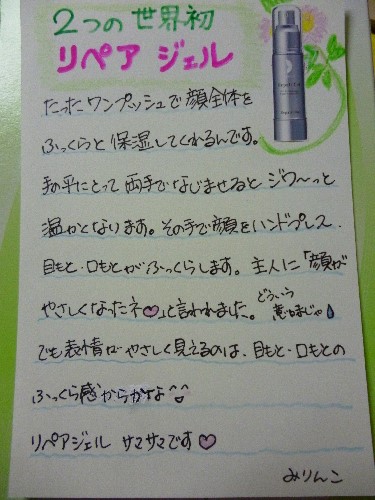 2つの世界初
リペア ジェル
たったワンプッシュで顔全体を
ふっくらと保湿してくれるんです。
手の平にとって両手でなじませるとジワ〜っと
温かくなります。その手で顔をハンドプレス、
目もと・口もとがふっくらします。主人に「顔が
やさしくなったネ♡」と言われました。
どういう
意味じゃ
でも表情がやさしく見えるのは、目もと・口もとの
ふっくら感からかな^^
リペアジェル サマサマです♡
みりんこ